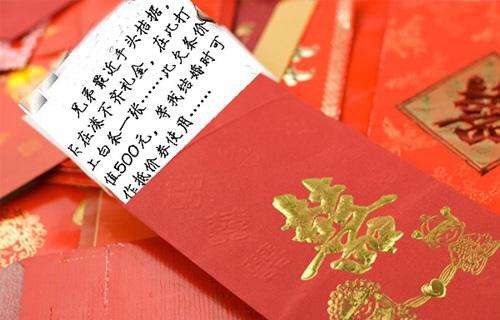 兄弟最近手头拮据，
在凑不齐礼金，在此打
上白条一张……此欠条价
值500元，等我结婚时可
作抵价券使用……
囍
囍